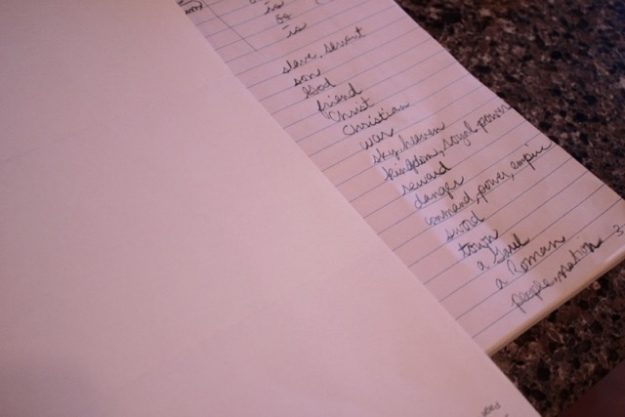 is
is
slave, servant
son
God
friend
Christ
Christian
war
sky, heaven
kingdom, royal power
reward
danger
command, power, empire
sword
town
a Gaul
a Roman
people, nation
3